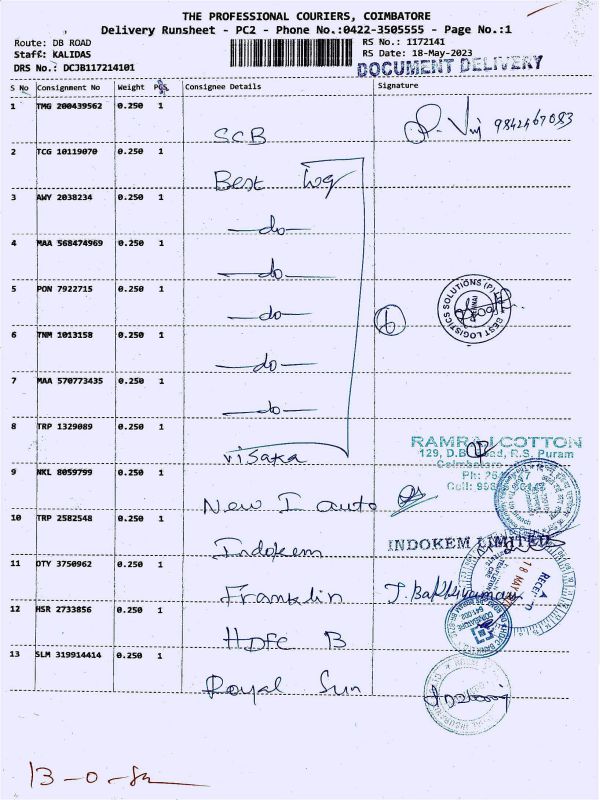 THE PROFESSIONAL COURIERS, COIMBATORE
Delivery Runsheet - PC2 - Phone No.:0422-3505555 - Page No.:1
Route: DB ROAD
RS No.: 1172141
Staff: KALIDAS
RS Date: 18-May-2023
DRS No.: DCJB117214101
DOCUMENT DELIVERY
S No Consignment No Weight PCS Consignee Details Signature
1 TMG 200439562 0.250 1
SCB
9842467083
2 TCG 10119070 0.250 1
Best log
3 AWY 2038234 0.250 1
do
4 MAA 568474969 0.250 1
do
5 PON 7922715 0.250 1
do
6
BEST LOGISTICS SOLUTIONS (P)
6 TNM 1013158 0.250 1
do
7 MAA 570773435 0.250 1
do
8 TRP 1329089 0.250 1
visaka
RAMRAJ COTTON
R.S. Puram
Coimbatore
9 NKL 8059799 0.250 1
New I auto
10 TRP 2582548 0.250 1
Indokem
INDOKEM LIMITED
11 OTY 3750962 0.250 1
Franklin
18 MAY
12 HSR 2733856 0.250 1
HDFC B
13 SLM 319914414 0.250 1
Royal Sun
13 - 0 -